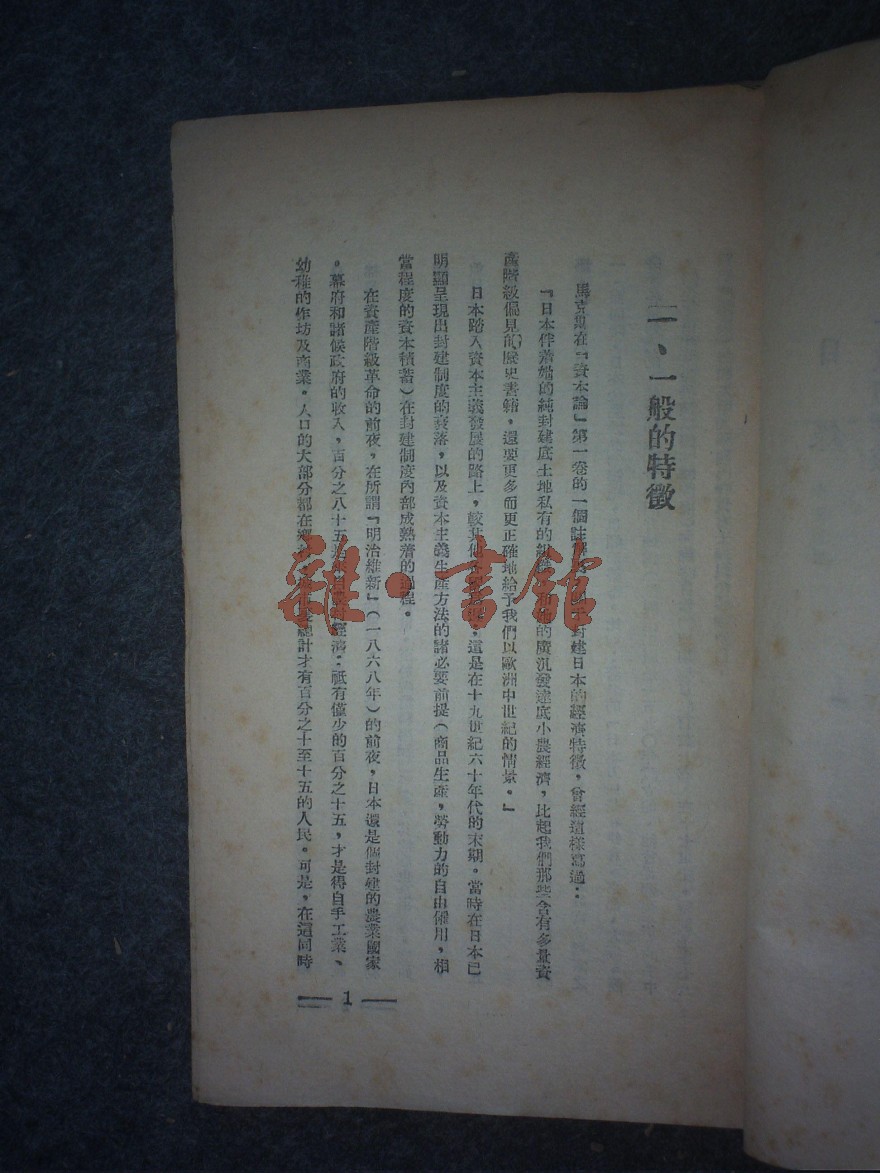 一、一般的特徵
馬克思在『資本論』第一卷的一個註 封建日本的經濟特徵，曾經這樣寫過：
『日本伴着她的純封建底土地私有的組織 的廣汎發達底小農經濟，比起我們那些含有多量資
產階級偏見的歷史書籍，還要更多而更正確地給予我們以歐洲中世紀的情景。』
日本踏入資本主義發展的路上，較其他 這是在十九世紀六十年代的末期。當時在日本已
明顯呈現出封建制度的衰落，以及資本主義生產方法的諸必要前提（商品生產，勞動力的自由僱用，相
當程度的資本積蓄）在封建制度內部成熟着的過程。
在資產階級革命的前夜，在所謂『明治維新』（一八六八年）的前夜，日本還是個封建的農業國家
。幕府和諸候政府的收入，百分之八十五 經濟；祇有僅少的百分之十五，才是得自手工業、
幼稚的作坊及商業。人口的大部分都在鄉 總計才有百分之十至十五的人民。可是，在這同時
1
雜·書館